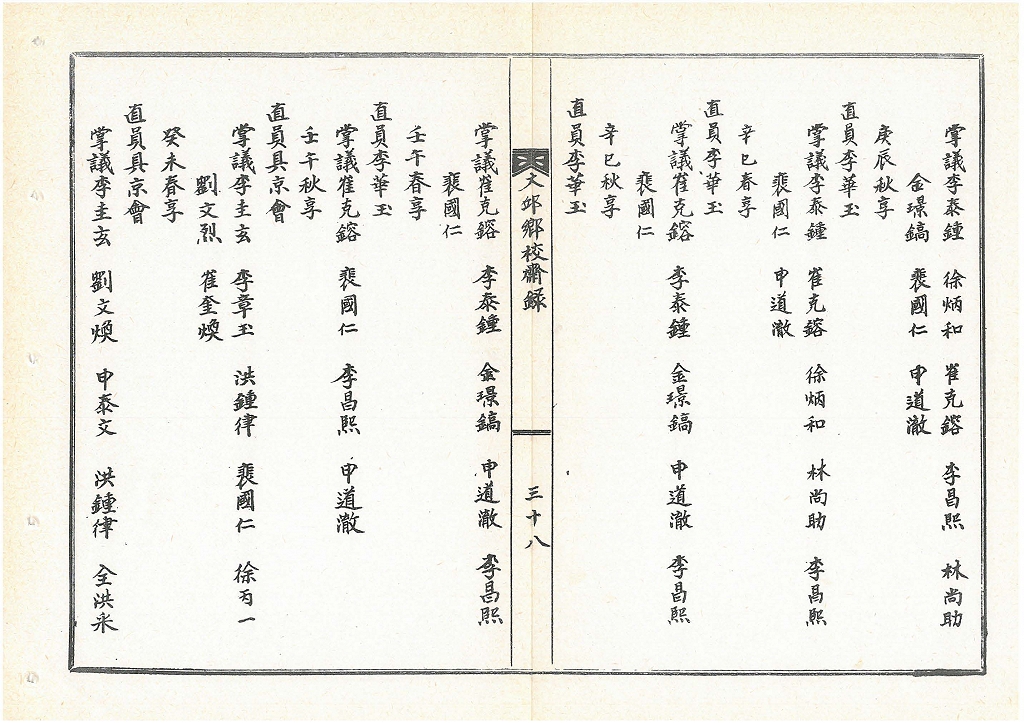 掌議李泰鍾 徐炳和 崔克鎔 李昌熙 林尚助
金璟鎬 裵國仁 申道澈
庚辰秋享
直員李華玉
掌議李泰鍾 崔克鎔 徐炳和 林尚助 李昌熙
裵國仁 申道澈
辛巳春享
直員李華玉
掌議崔克鎔 李泰鍾 金璟鎬 申道澈 李昌熙
裵國仁
辛巳秋享
直員李華玉
大邱鄉校齋録
三十八
掌議崔克鎔 李泰鍾 金璟鎬 申道澈 李昌熙
裵國仁
壬午春享
直員李華玉
掌議崔克鎔 裵國仁 李昌熙 申道澈
壬午秋享
直員具京會
掌議李圭玄 李章玉 洪鍾律 裵國仁 徐丙一
劉文烈 崔奎煥
癸未春享
直員具京會
掌議李圭玄 劉文煥 申泰文 洪鍾律 全洪采